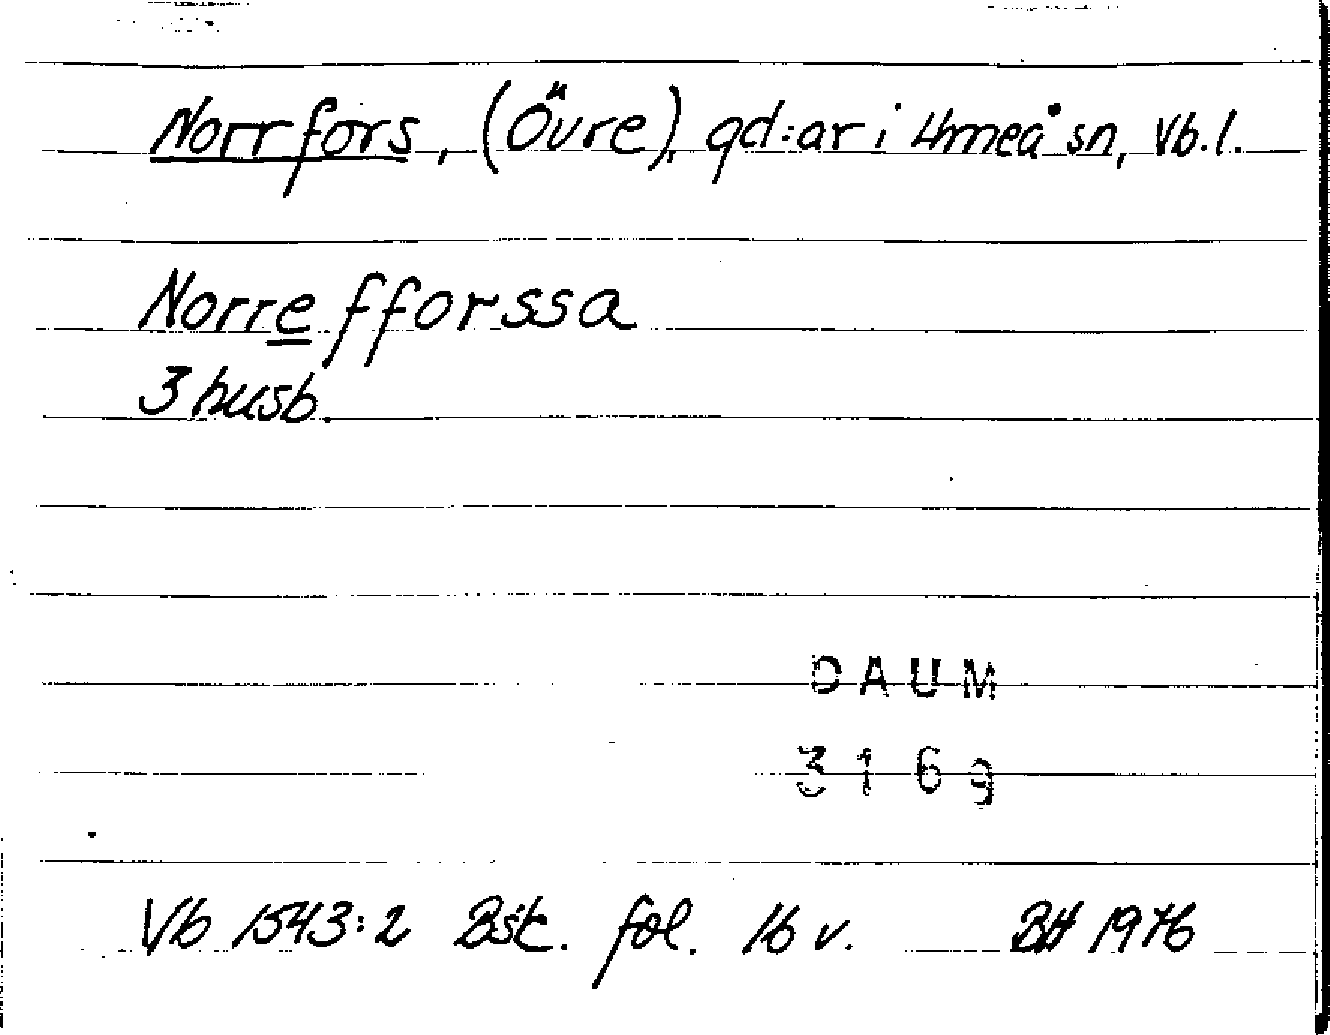 Norrfors, (Övre), gd:ar i Umeå sn, Vb.l.
Norrefforssa
3 husb.
DAUM
3169
Vb 1543:2 Bsk. fol. 16 v. BH 1976